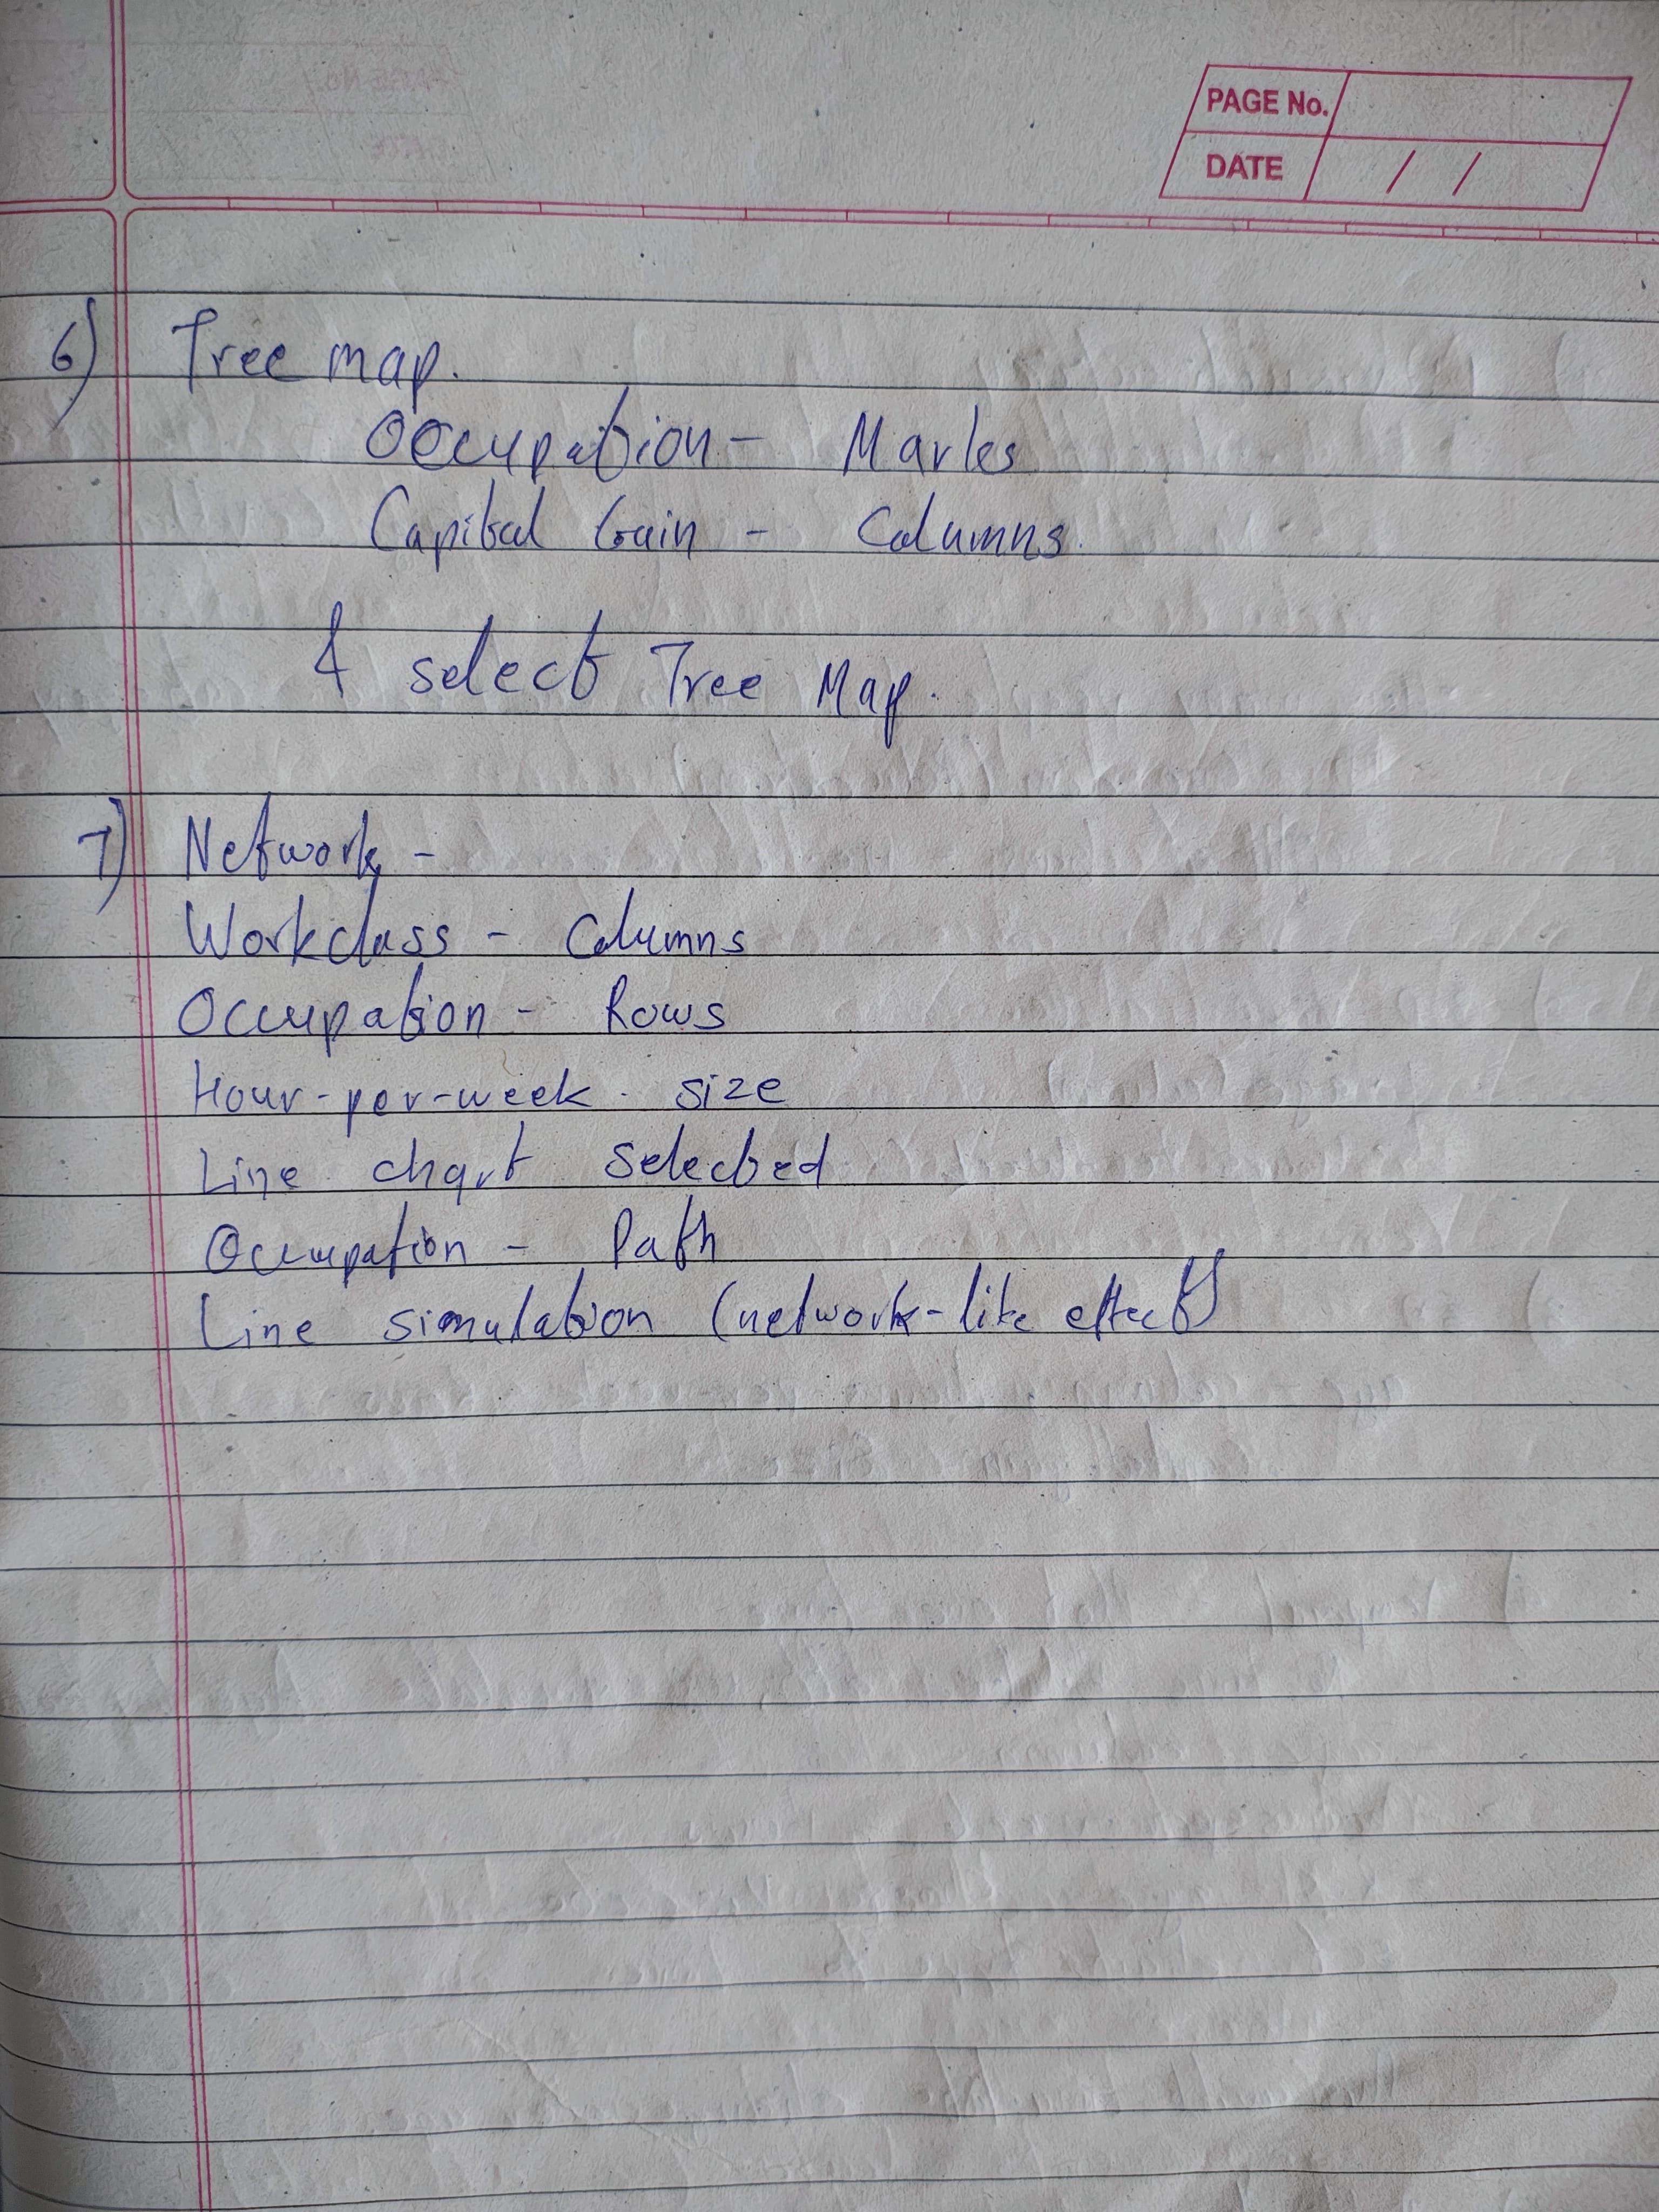 PAGE No.
DATE / /
6) Tree map.
Occupation - Marks
Capital Gain - Columns.
& select Tree Map.
7) Network -
Workclass - Columns
Occupation - Rows
Hour-per-week - size
Line chart selected
Occupation - Path
Line simulation (network-like effect)